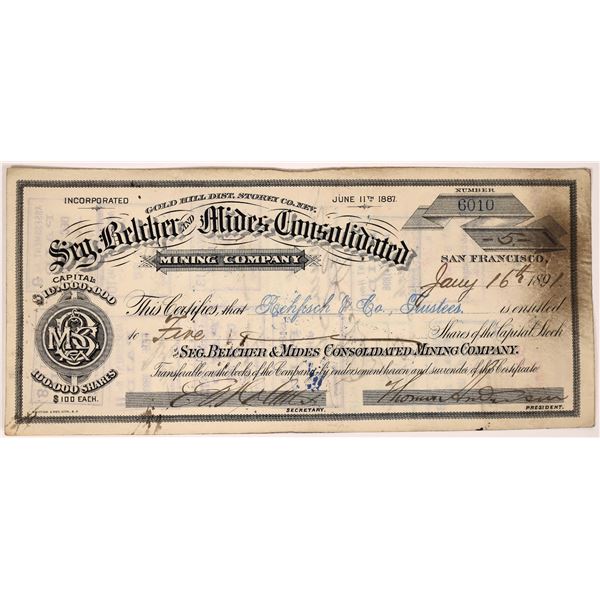 INCORPORATED GOLD HILL DIST. STOREY CO. NEV. JUNE 11TH 1887.
NUMBER
6010
Seg. Belcher AND Mides Consolidated
MINING COMPANY
5
SAN FRANCISCO,
Jany 16th 1891
CAPITAL
$10,000,000
100,000 SHARES
$100 EACH.
This Certifies, that & Co., Trustees is entitled
to Five Shares of the Capital Stock
of the SEG. BELCHER & MIDES CONSOLIDATED MINING COMPANY.
Transferable on the books of the Company by endorsement hereon and surrender of this Certificate
SECRETARY.
Thomas Anderson
PRESIDENT.